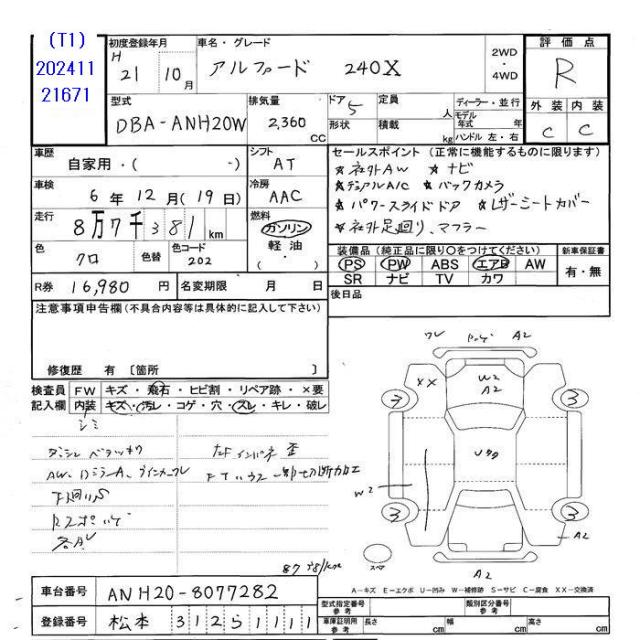 (T1)
202411
21671
初度登録年月
H
21 10月
車名・グレード
アルファード 240X
2WD
・
4WD
評価点
R
型式
DBA-ANH20W
排気量
2,360
CC
ドア 5
形状
定員
人
積載
kg
ディーラー・並行
モデル年式 年
ハンドル 左・右
外装 内装
C C
車歴
自家用・( -)
シフト
AT
セールスポイント (正常に機能するものに限ります)
★社外AW ★ナビ
★デュアルA/C ★バックカメラ
★パワースライドドア ★レザーシートカバー
★社外足廻り、マフラー
車検
6年12月(19日)
冷房
AAC
走行
8万7千381km
燃料
ガソリン
軽油
・
( )
色
クロ
色替
色コード
202
装備品 (純正品に限り○をつけてください)
PS PW ABS エアB AW
SR ナビ TV カワ
新車保証書
有・無
R券 16,980円
名変期限 月 日
後日品
注意事項申告欄(不具合内容等は具体的に記入して下さい)
修復歴 有 [箇所 ]
検査員
記入欄
FW キズ・飛石・ヒビ割・リペア跡・×要
内装 キズ・汚レ・コゲ・穴・スレ・キレ・破レ
シミ
ダッシュ ベタツキ
下廻りS
各AU
87381km
A2
XX
W2
A2
3 3
3 3
W2
A2
A2
スペア
A-キズ E-エクボ U-凹み W-補修跡 S-サビ C-腐食 XX-交換済
車台番号 ANH20-8077282
登録番号 松本 312ら1111
型式指定番号
参考
類別区分番号
参考
車庫証明用
参考
長さ cm
幅 cm
高さ cm